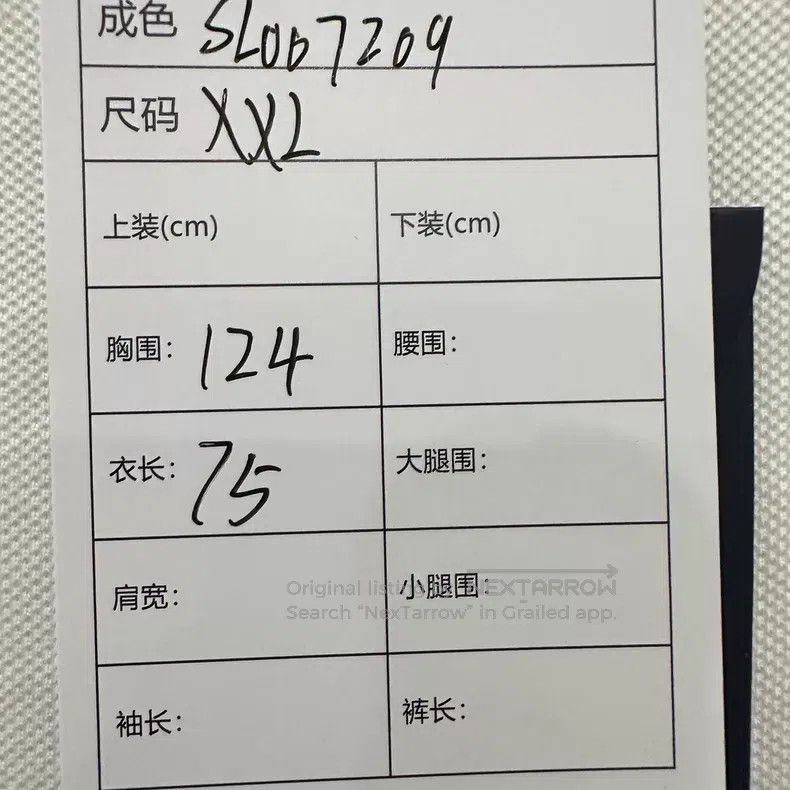 成色 SL007209
尺码 XXL
上装(cm) 下装(cm)
胸围: 124 腰围:
衣长: 75 大腿围:
肩宽: 小腿围:
Original listing NEXTARROW
Search “NexTarrow” in Grailed app.
袖长: 裤长: